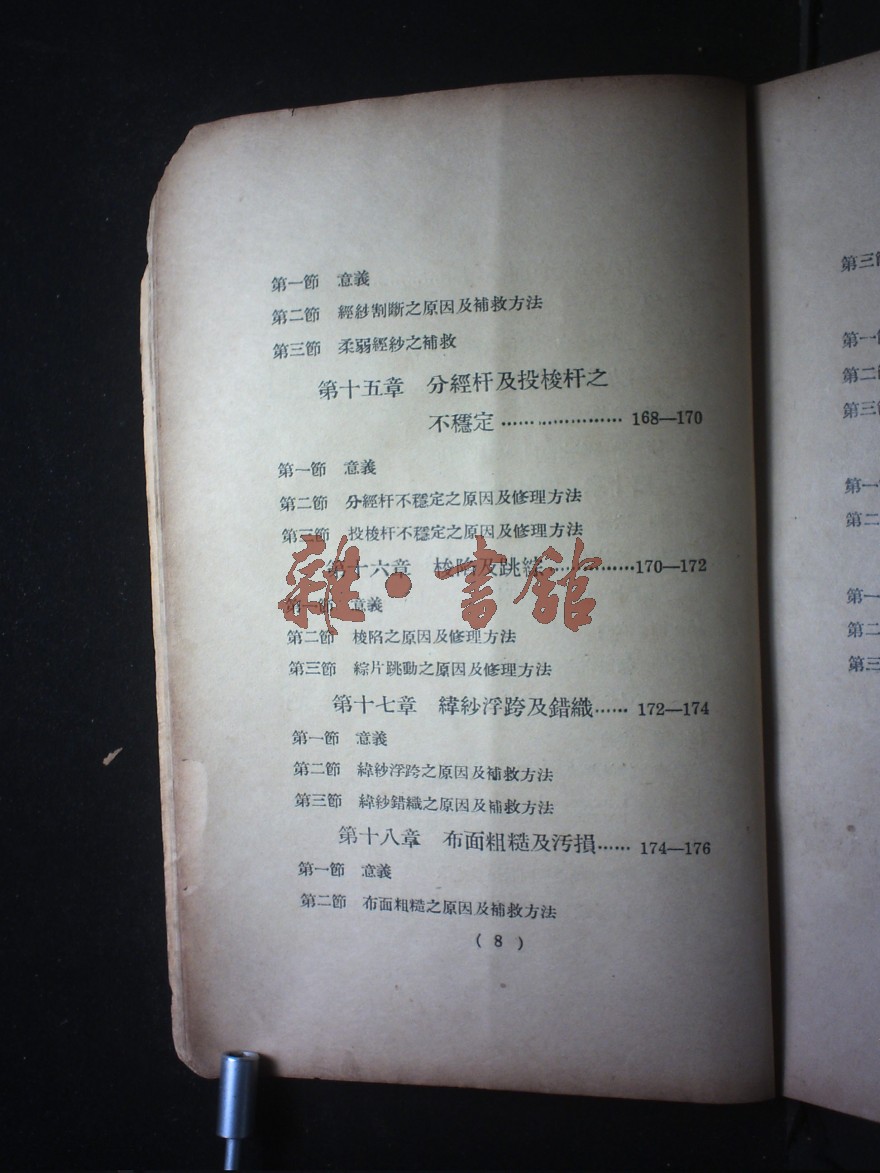 第一節 意義
第二節 經紗割斷之原因及補救方法
第三節 柔弱經紗之補救
第十五章 分經杆及投梭杆之
不穩定………………… 168—170
第一節 意義
第二節 分經杆不穩定之原因及修理方法
第三節 投梭杆不穩定之原因及修理方法
第十六章 梭陷及跳綜……………170—172
第一節 意義
第二節 梭陷之原因及修理方法
第三節 綜片跳動之原因及修理方法
第十七章 緯紗浮跨及錯織…… 172—174
第一節 意義
第二節 緯紗浮跨之原因及補救方法
第三節 緯紗錯織之原因及補救方法
第十八章 布面粗糙及汚損…… 174—176
第一節 意義
第二節 布面粗糙之原因及補救方法
( 8 )
雜·書館
第三
第一
第二
第三
第一
第二
第一
第二
第三